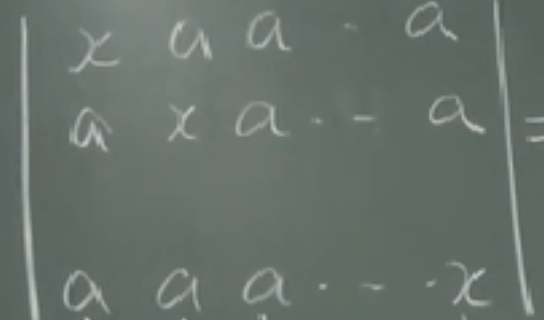 | x a a · a |
| a x a · - a | =
| a a a · - · x |